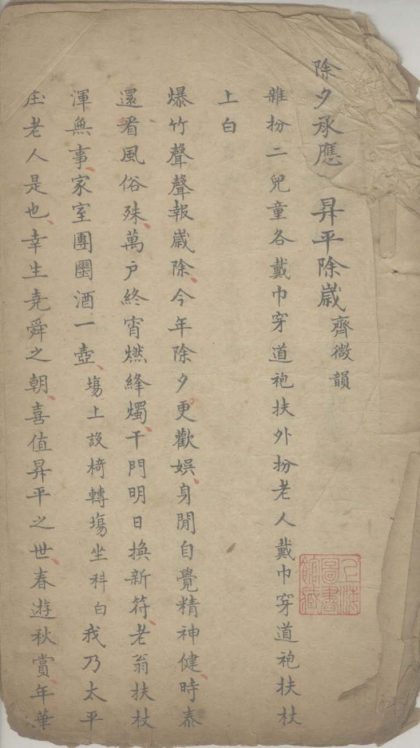 除夕承應　昇平除歲 齊微韻
雜扮二兒童各戴巾穿道袍扶外扮老人戴巾穿道袍扶杖
上白
爆竹聲聲報歲除今年除夕更歡娛身閒自覺精神健時泰
還看風俗殊萬户終宵燃絳燭千門明日換新符老翁扶杖
渾無事家室團圞酒一壺 塲上設椅轉塲坐科白 我乃太平
庄老人是也幸生堯舜之朝喜值昇平之世春遊秋賞年華